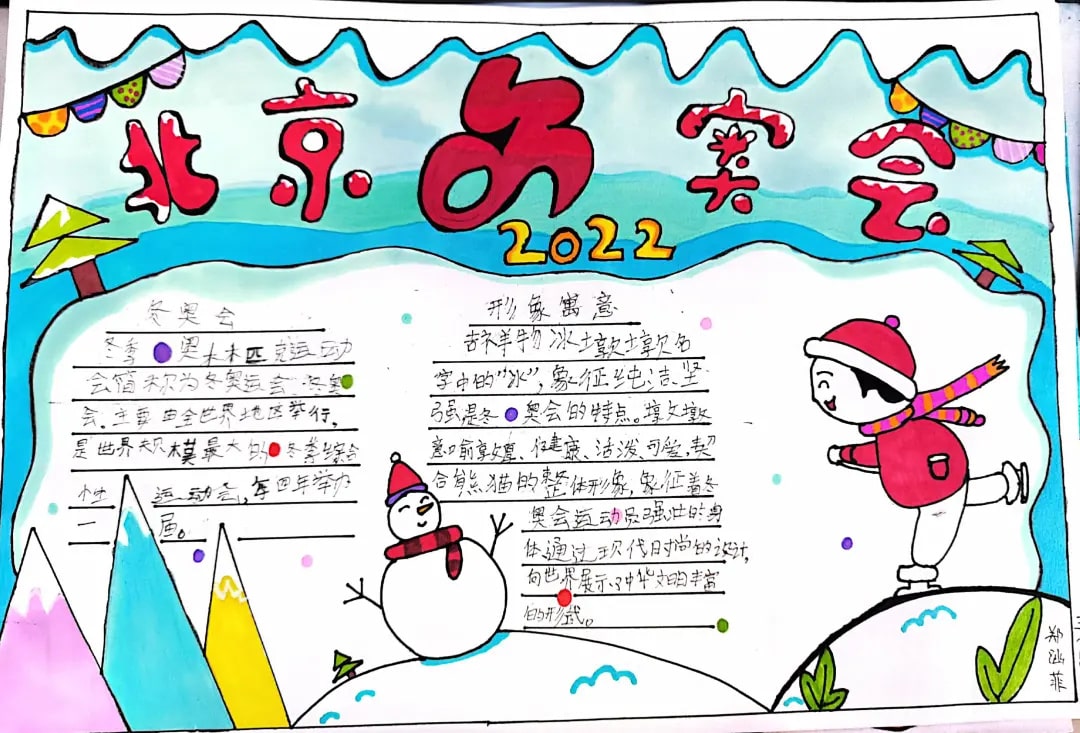 北京冬奥会
2022
冬奥会
冬季奥林匹克运动
会简称为冬奥运会。冬奥
会,主要由全世界地区举行,
是世界规模最大的冬季综合
性运动会,每四年举办
一届。
形象寓意
吉祥物冰墩墩名
字中的“冰”,象征纯洁、坚
强是冬奥会的特点。墩墩
意喻敦厚、健康、活泼、可爱,契
合熊猫的整体形象,象征着冬
奥会运动员强壮的身
体通过现代时尚的设计,
向世界展示了中华文明丰富
的形式。
郑汕菲